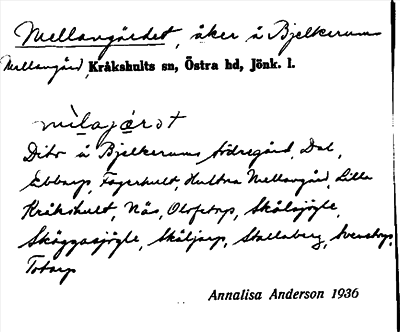 Mellangärdet, åker å Bjelkerums
Mellangård, Kråkshults sn, Östra hd, Jönk. l.
mìlajæ̀rət
Dito å Bjelkerums Södregård, Dal,
Ebbarp, Fagerhult, Hultna Mellangård, Lilla
Kråkshult, Näs, Olofstorp, Skälsjögle,
Sköggasjögle, Sköljarp, Stallaberg, Svenstorp,
Totarp
Annalisa Anderson 1936